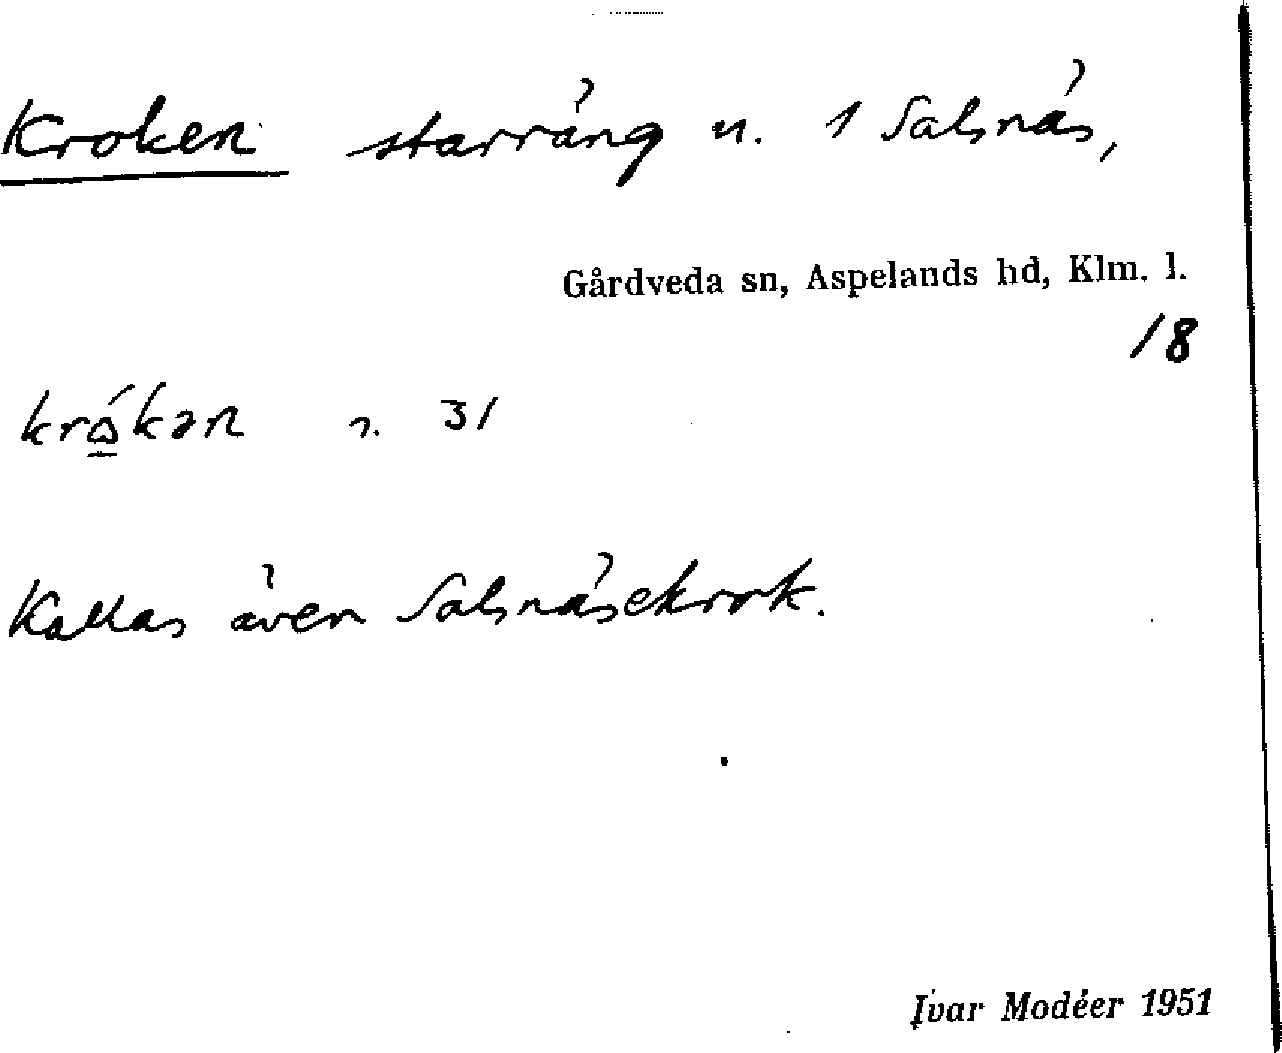 Kroken starräng u. 1 Salsnäs,
Gårdveda sn, Aspelands hd, Klm. l.
18
31
Kallas även Salsnäsekrok.
Ivar Modéer 1951